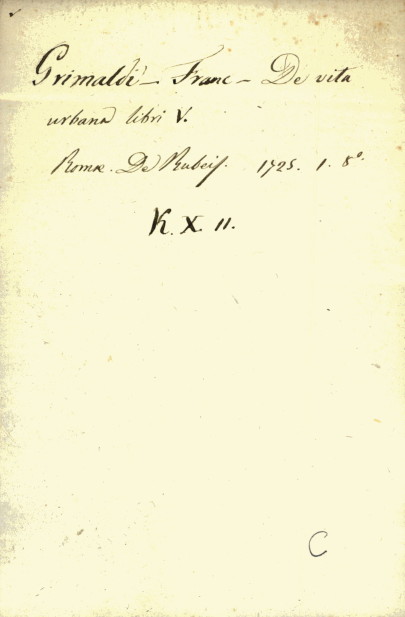 Grimaldi - Franc - De vita
urbana libri V.
Romæ. De Rubeis. 1725. 1. 8°.
K. X. 11.
C